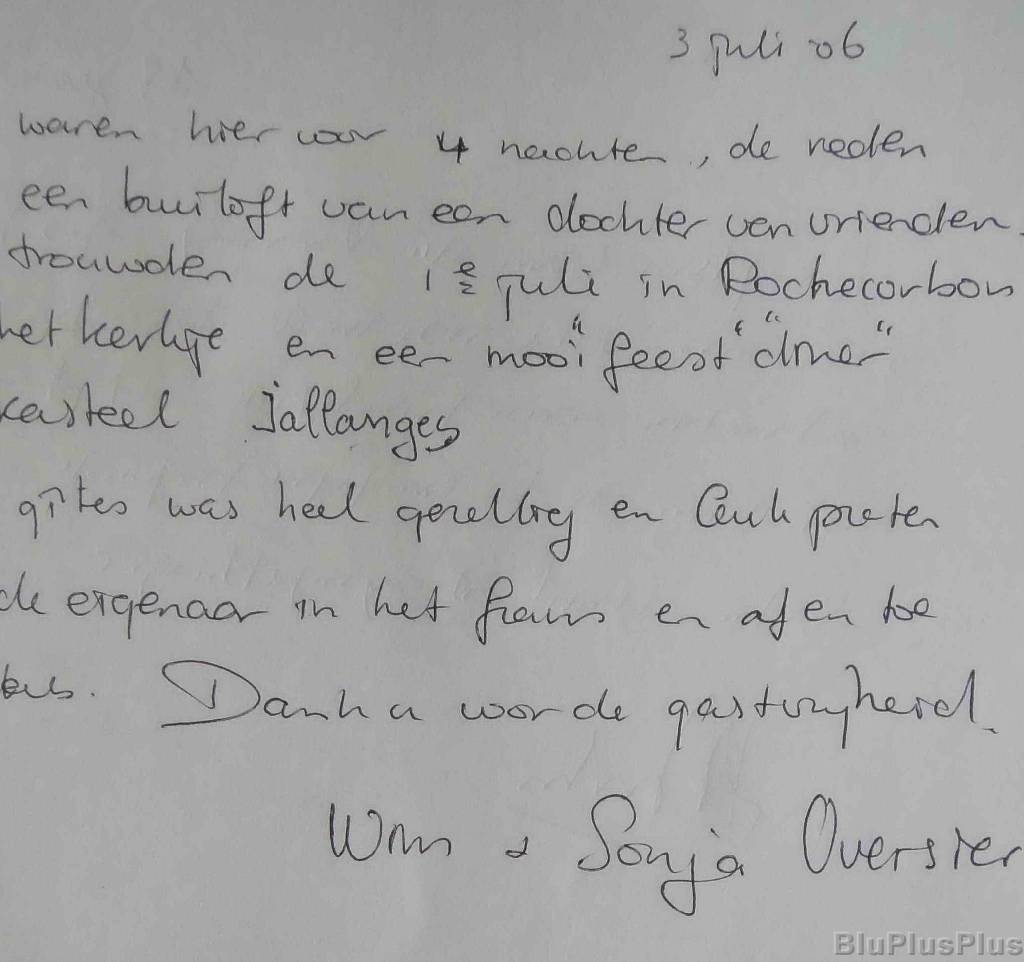 3 juli '06
waren hier voor 4 nachten, de reden
een bruiloft van een dochter van vrienden.
trouwden de 1e juli in Rochecorbon
het kerkje en een "mooi" feest "diner"
kasteel Jallanges
gîtes was heel gezellig en leuk praten
de eigenaar in het frans en af en toe
Dank u voor de gastvrijheid.
Wim & Sonja Oversier
BluPlusPlus